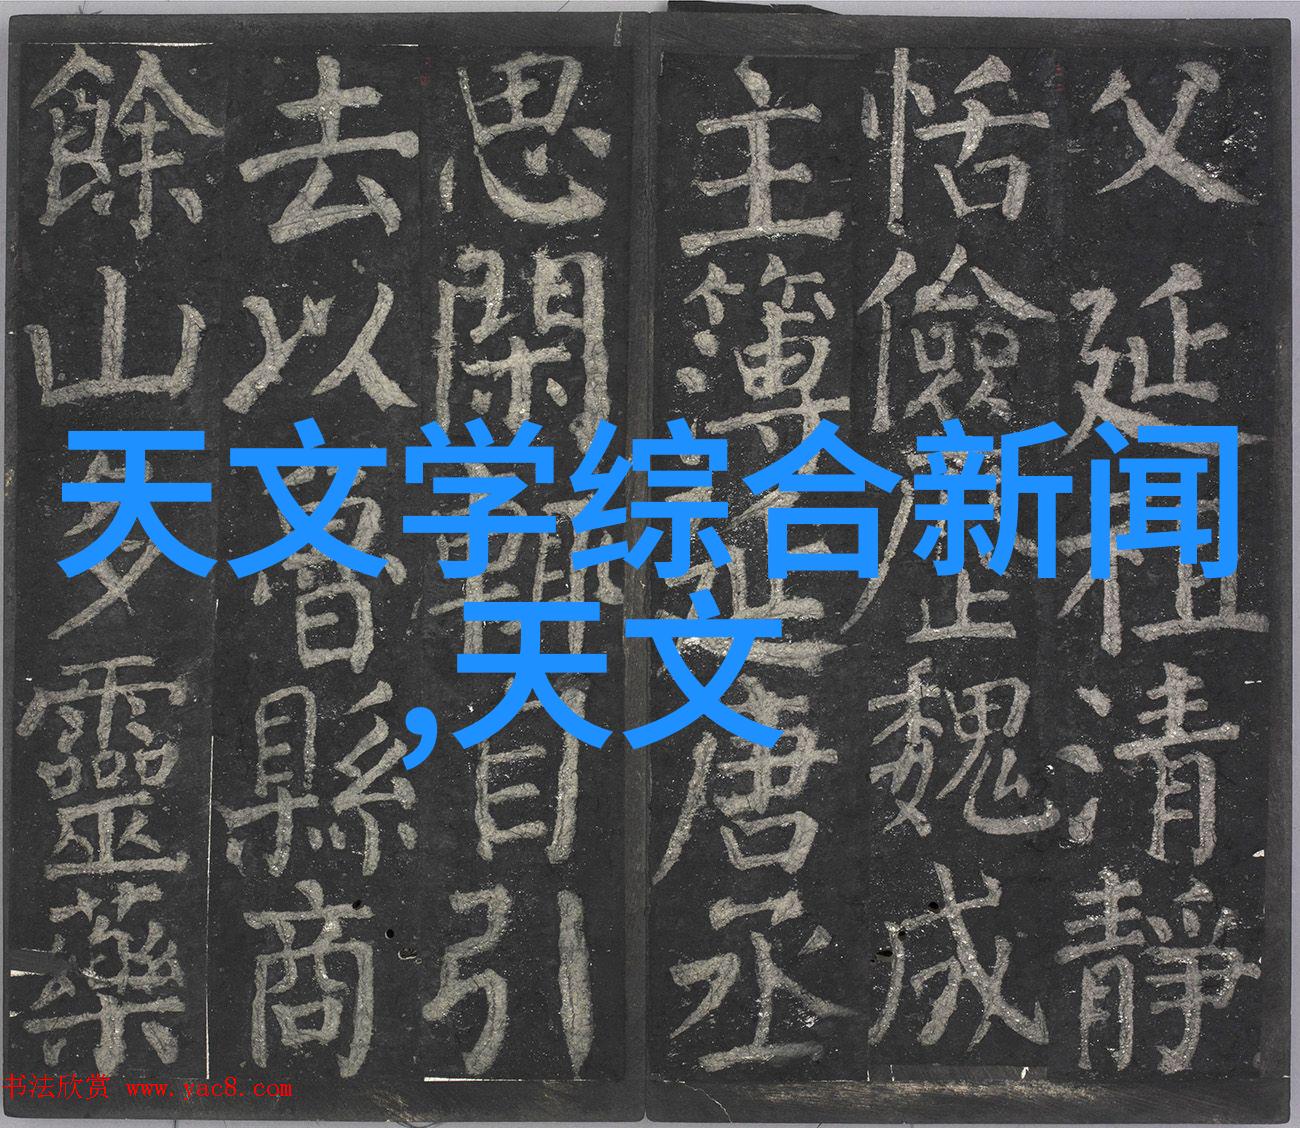 父延祖清靜
恬儉歷魏成
主簿延唐丞
思閑輒自引
去以魯縣商
餘山多靈藥
天文学综合新闻
,天文
书法欣赏 www.yac8.com